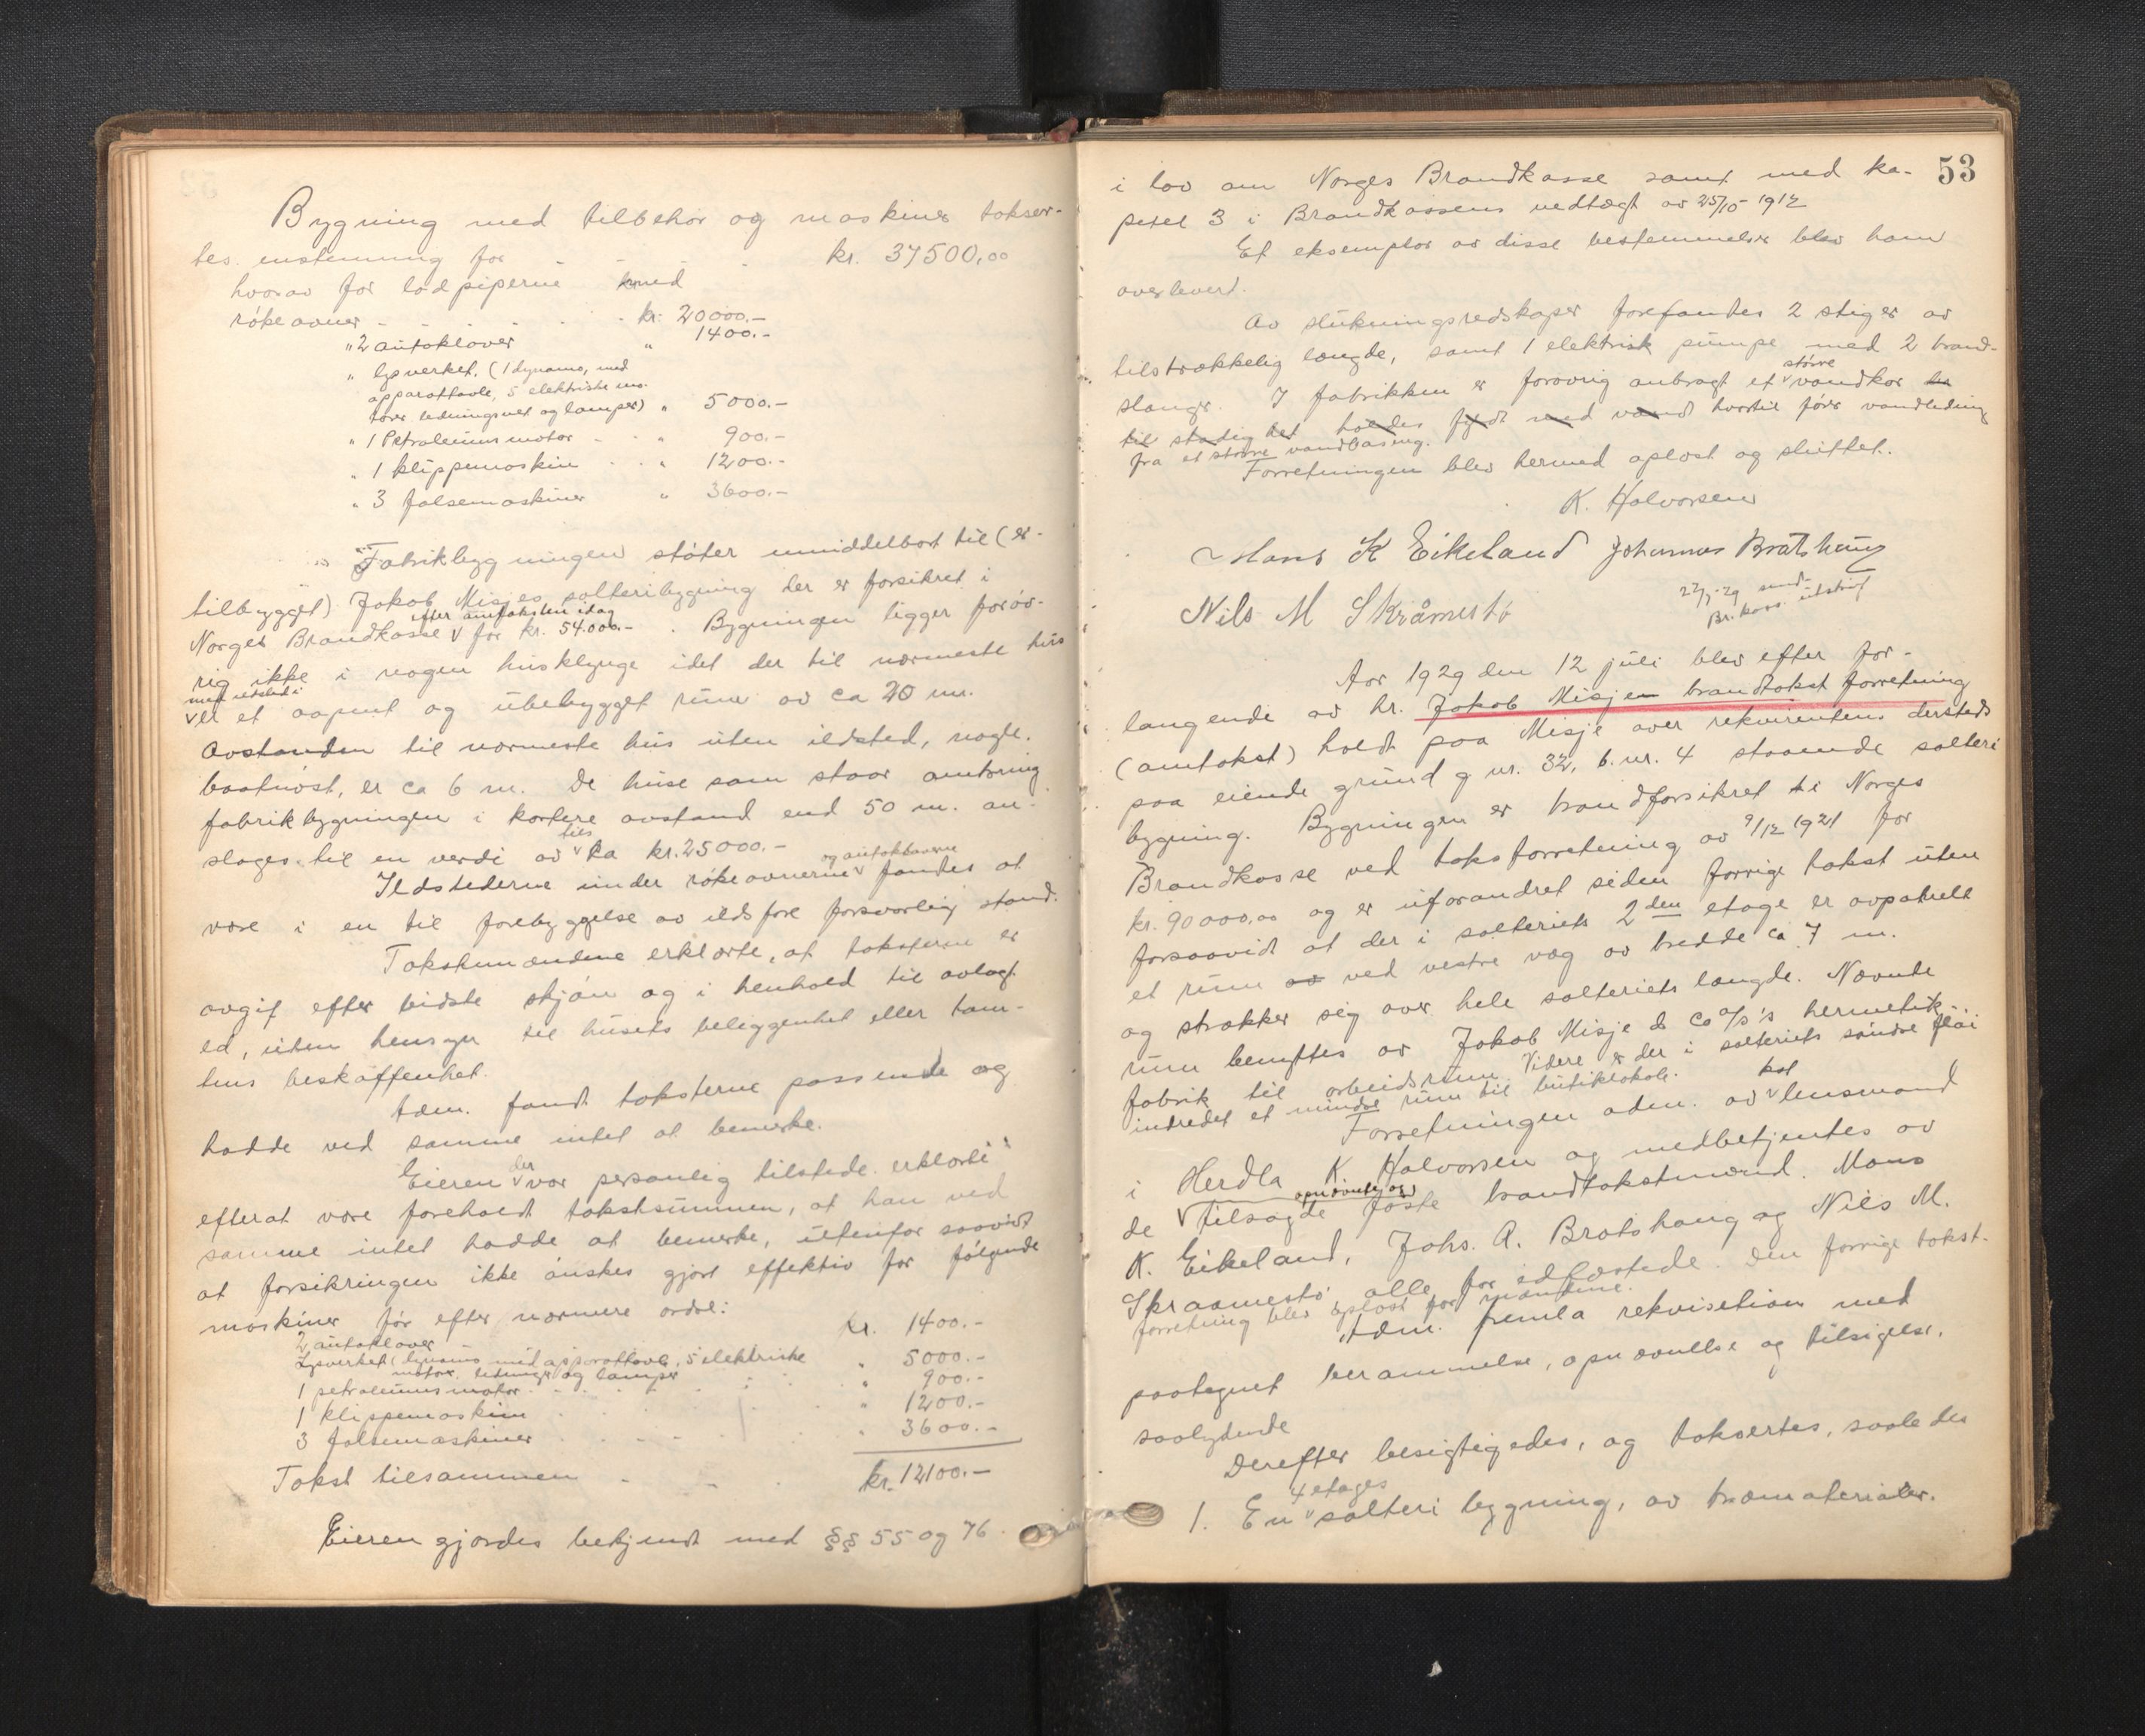 Bygning med tilbehör og maskiner takser-
tes enstemmig for - - - kr. 37500,00
hvorav for lodpiperne med
rökeovner - - - kr. 20000.-
" 2 autoklaver " 1400.-
" lysverket, (1 dynamo, med
apparattavle, 5 elektriske mo-
torer ledningsnet og lamper) " 5000.-
" 1 Petroleumsmotor - - " 900.-
" 1 klippemaskin - - " 1200.-
" 3 falsemaskiner " 3600.-
Fabrikbygningen stöter umiddelbart til (er
tilbygget) Jakob Misjes salteribygning der er forsikret i
efter amtaksten idag
Norges Brandkasse v for kr. 54.000.- . Bygningen ligger foröv-
rig ikke i nogen husklynge idet der til nærmeste hus
med ildsted i
v er et aapent og ubebygget rum av ca 20 m.
Avstanden til nærmeste hus uten ildsted, nogle
baatnöst, er ca 6 m. De huse som staar omkring
fabrikbygningen i kortere avstand end 50 m. an-
slages til en verdi av v ca kr. 25000.-
og autoklaverne
Ildstederne under rökeovnerne v fandtes at
være i en til forebyggelse av ildsfare forsvarlig stand.
Takstmændene erklærte, at taksterne er
avgit efter bedste skjön og i henhold til avlagt
ed, uten hensyn til husets beliggenhet eller tom-
tens beskaffenhet.
Ldm. fandt taksterne passende og
hadde ved samme intet at bemerke.
Eieren v der var personlig tilstede erklærte
efterat være foreholdt takstsummen, at han ved
samme intet hadde at bemerke, utenfor saavidt
at forsikringen ikke önskes gjort effektiv for fölgende
maskiner för efter nærmere ordre:
2 autoklaver kr. 1400.-
Lysverket (dynamo med apparattavle, 5 elektriske " 5000.-
motorer, ledninger og lamper
1 petroleumsmotor - - - " 900.-
1 klippemaskin - - - " 1200.-
3 falsemaskiner - - - " 3600.-
Takst tilsammen - - - kr. 12100.-
Eieren gjordes bekjendt med §§ 55 og 76
53
i lov om Norges Brandkasse samt med ka-
pitel 3 i Brandkassens vedtægt av 25/10 1912
Et eksemplar av disse bestemmelser blev ham
overlevert.
Av slukningsredskaper forefandtes 2 stiger av
tilstrækkelig længde, samt 1 elektrisk pumpe med 2 brand-
större
slanger. I fabrikken er forövrig anbragt et v vandkar
til stadig het holdes fyldt med vand hvortil förer vandledning
fra et större vandbasseng.
Forretningen blev hermed oplæst og sluttet.
K. Halvorsen
Mons K Eikeland Johannes Bratshaug
Nils M Skråmestö
27/7-29 send
Br.kass. utskrift
Aar 1929 den 12 juli blev efter for-
langende av hr. Jakob Misjem brandtakst forretning
(omtakst) holdt paa Misje over rekvirentens dersteds
paa eiende grund g.nr. 32, b.nr. 4 staaende salteri
bygning. Bygningen er brandforsikret i Norges
Brandkasse ved takstforretning av 9/12 1921 for
kr. 90000,00 og er uforandret siden forrige takst uten
forsaavidt at der i salteriets 2den etage er avpanelt
et rum ved vestre væg av bredde ca 7 m.
og strækker sig over hele salteriets længde. Nævnte
rum benyttes av Jakob Misje & Co a/s's hermetik-
fabrik til arbeidsrum. Videre er der i salteriets söndre flöi
indredet et mindre rum til butiklokale.
kst
Forretningen adm. av v lensmand
i Herdla K. Halvorsen og medbetjentes av
opnævnte og
de v tilsagte faste brandtakstmænd Mons
K. Eikeland, Johs. A. Bratshaug og Nils M.
Skraamestö, alle før edfæstede. Den forrige takst-
forretning blev oplæst for mændene.
Ldm. fremla rekvisition med
paategnet berammelse, opnævnelse og tilsigelse,
saalydende
Derefter besigtigedes, og taksertes, saaledes
4 etages
1. En v salteri bygning, av træmaterialer.